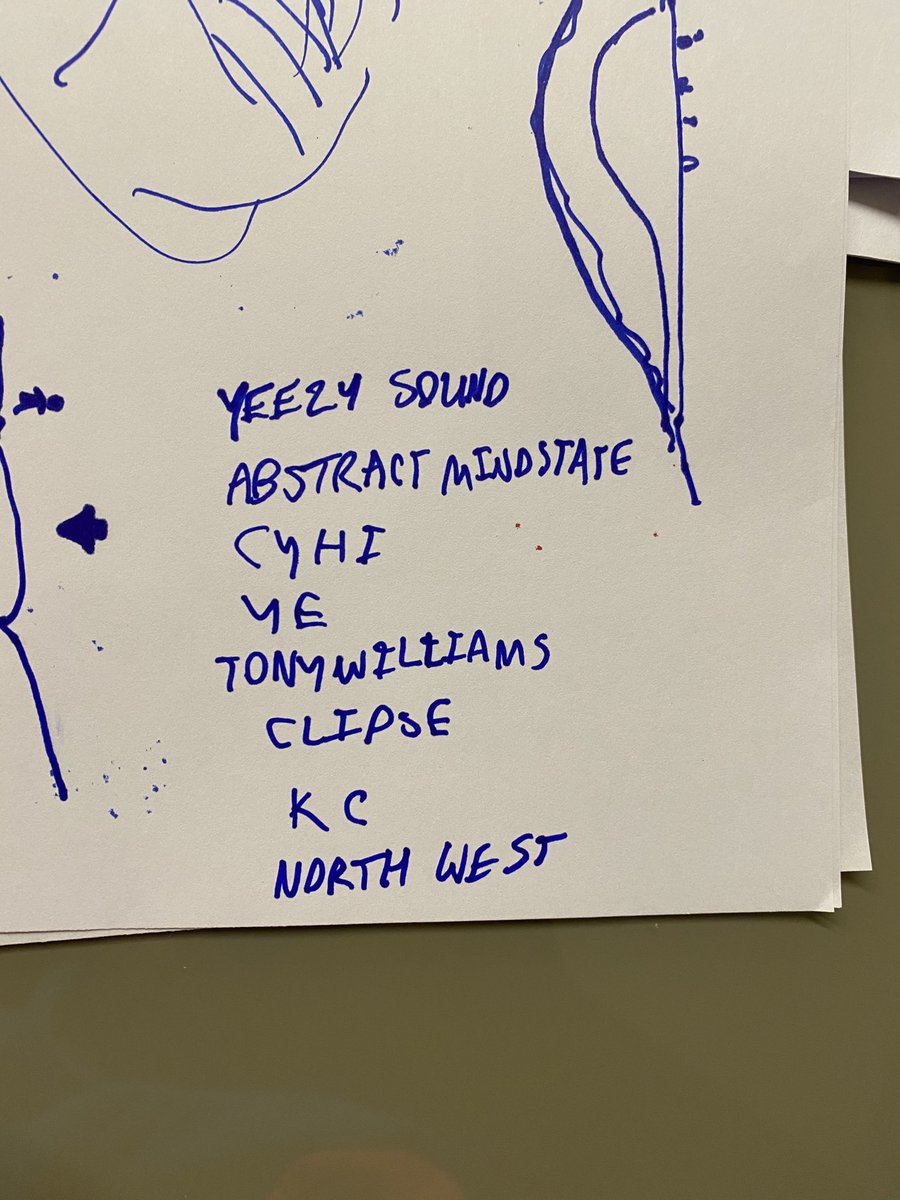 YEEZY SOUND
ABSTRACT MINDSTATE
CYHI
YE
TONY WILLIAMS
CLIPSE
KC
NORTH WEST